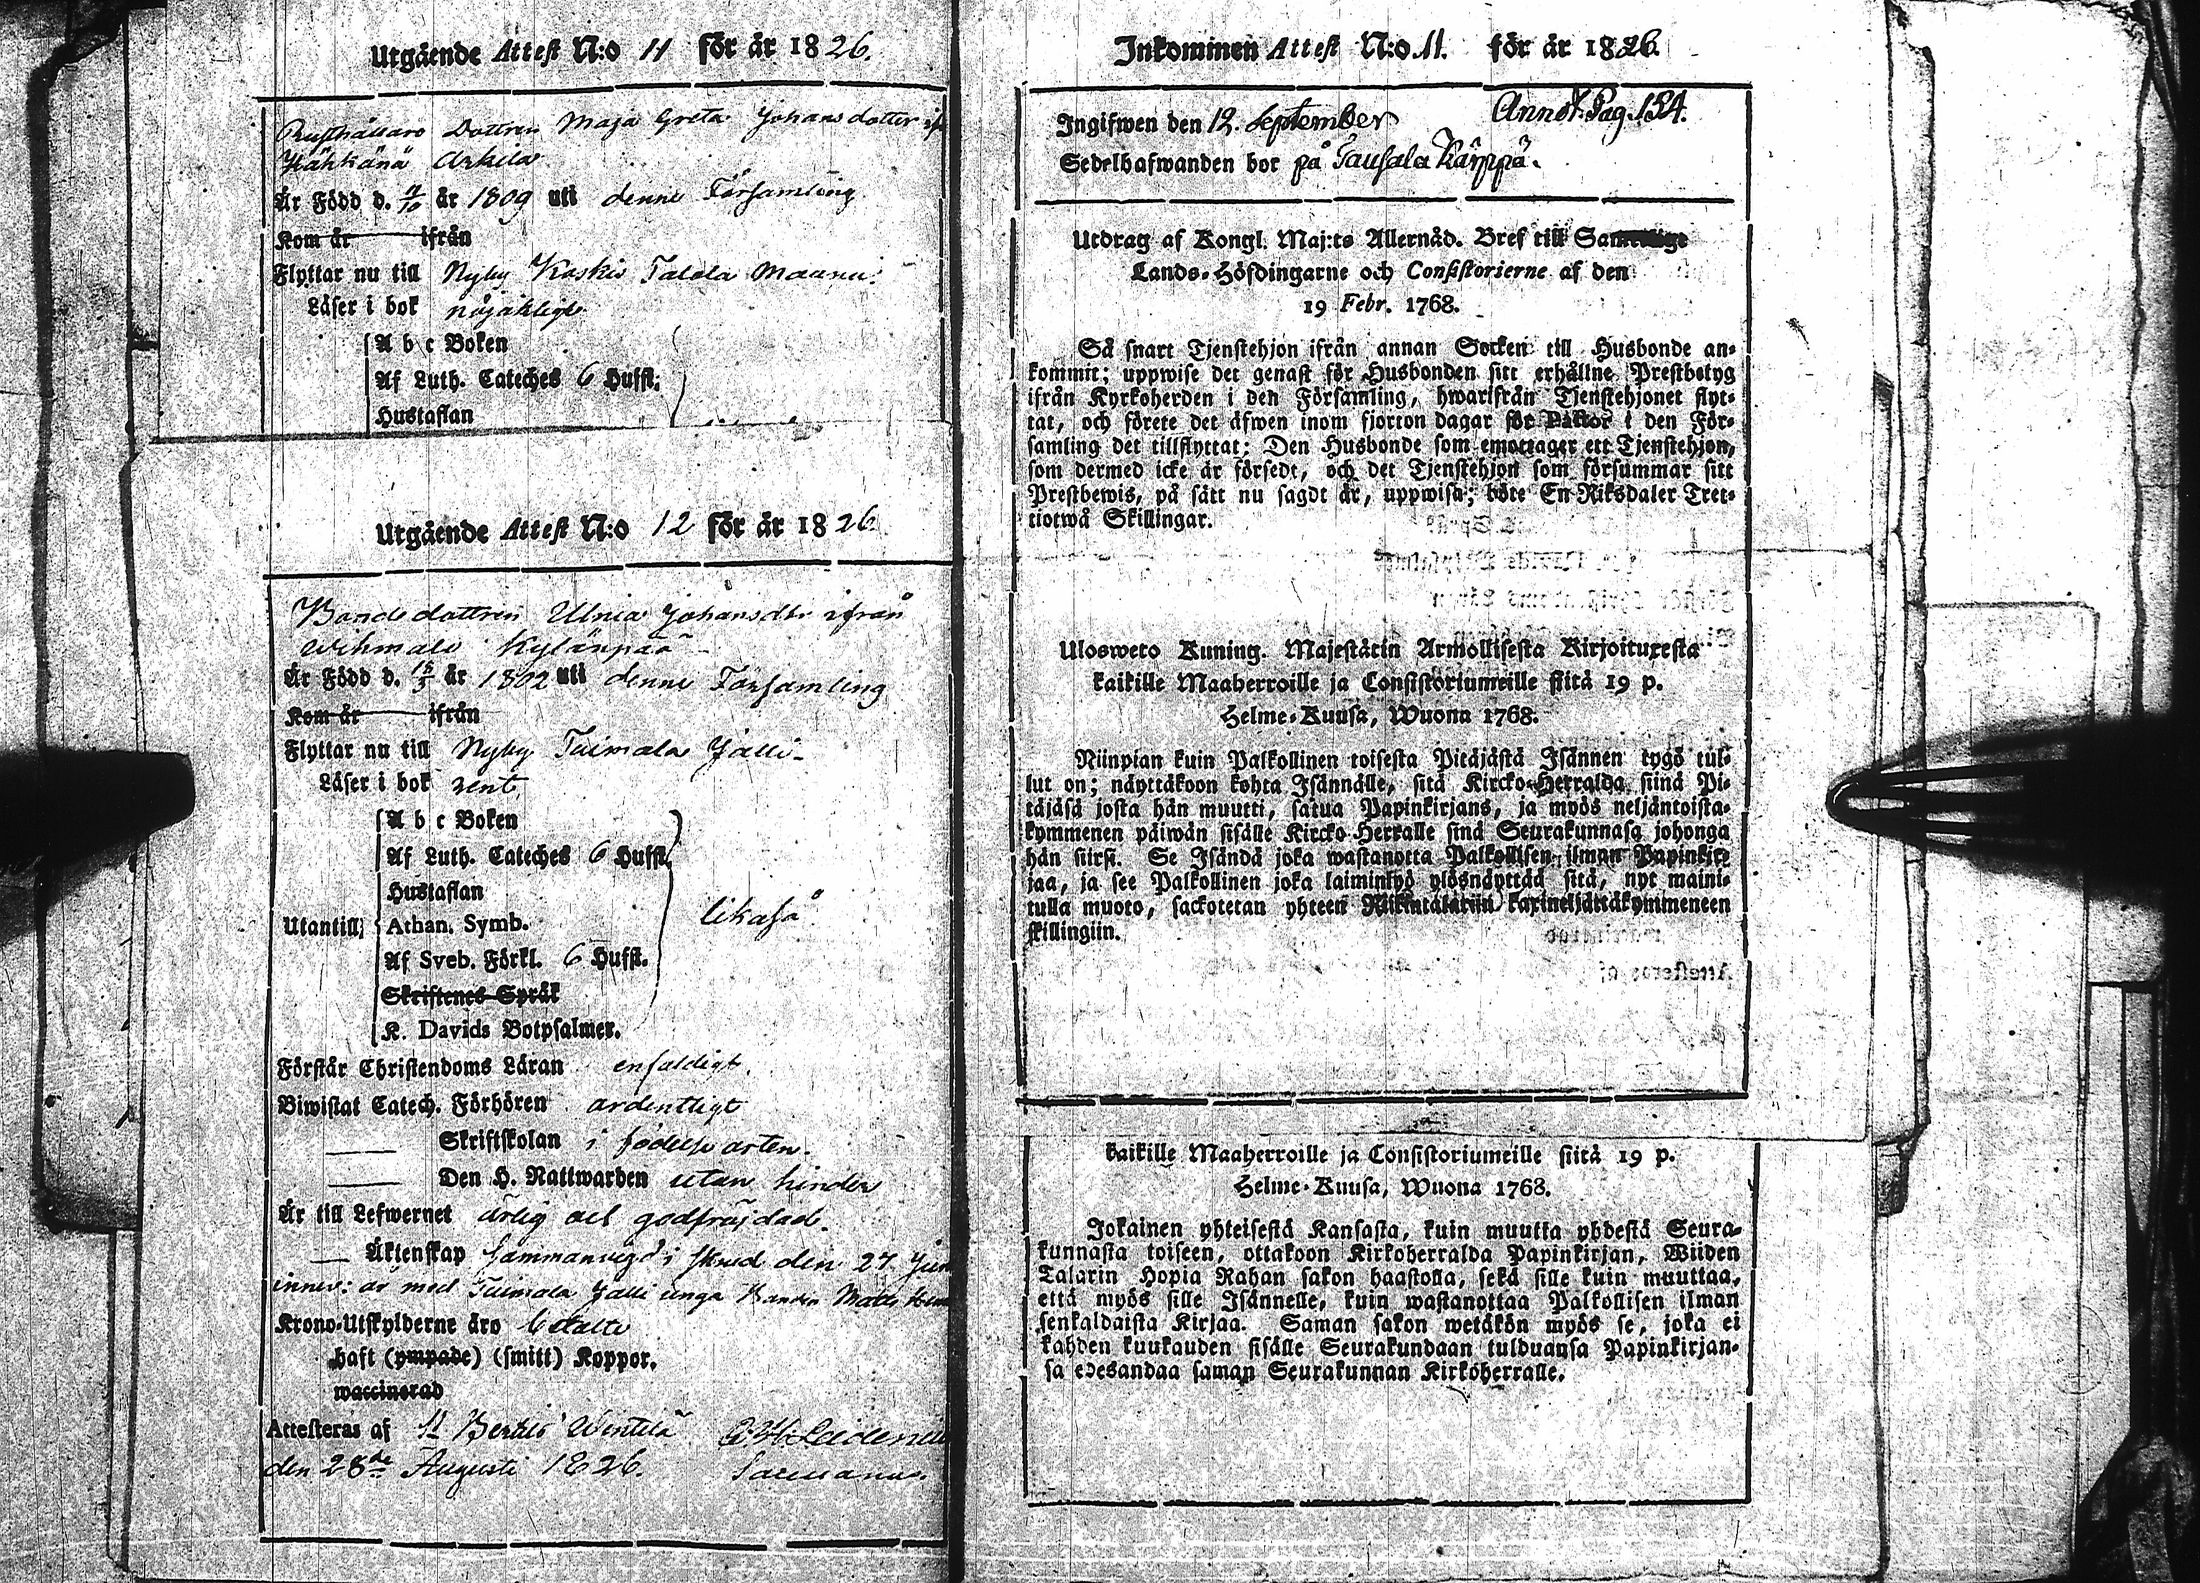 Utgående Attest N:o 11 för år 1826.
Rusthållare Dottren Maja Greta Johansdotter
Arkila
Är Född d. 11/10 år 1809 uti denne Församling
Kom år ifrån
Flyttar nu till Nyby Koskis Talola Maunu
Läser i bok nöjakligt
A b c Boken
Af Luth. Cateches 6 Hufst;
Hustaflan
Utgående Attest N:o 12 för år 1826.
Bonde dottren Ulrica Johansdtr ifrån
Wihmalo Kylänpää
Är Född d. 15/3 år 1802 uti denne Församling
Kom år ifrån
Flyttar nu till Nyby Tuimala Jalli
Läser i bok rent
A b c Boken
Af Luth. Cateches 6 Hufst.
Hustaflan
Utantill; Athan. Symb. likaså
Af Sveb. Förkl. 6 Hufst.
Skriftenes Språk
K. Davids Botpsalmer.
Förstår Christendoms Läran enfaldigt.
Biwistat Catech. Förhören ordentligt
Skriftskolan i födelse orten.
Den H. Nattwarden utan hinder
Är till Lefwernet ärlig och godfräjdad.
Äktenskap Sammanvigd i Skrud den 27 Jun
innev: år med Tuimala Jalli unga Bonden Matts
Krono-Utskylderne äro betalte
haft (ympade) (smitt) Koppor.
waccinerad
Attesteras af St Bertils Wintelä
den 28de Augusti 1826.
Inkommen Attest N:o 11. för år 1826.
Ingifwen den 12. September Annot. Pag. 154.
Sedelhafwanden bor på Tausala Kärppä.
Utdrag af Kongl. Maj:ts Allernåd. Bref till Samtelige
Lands-Höfdingarne och Consistorierne af den
19 Febr. 1768.
Så snart Tjenstehjon ifrån annan Socken till Husbonde an-
kommit; uppwise det genast för Husbonden sitt erhållne Prestbetyg
ifrån Kyrkoherden i den Församling, hwarifrån Tjenstehjonet flyt-
tat, och förete det äfwen inom fjorton dagar för Pastor i den För-
samling det tillflyttat; Den Husbonde som emottager ett Tjenstehjon,
som dermed icke är försedt, och det Tjenstehjon som försummar sitt
Prestbewis, på sätt nu sagdt är, uppwisa; böte En Riksdaler Tret-
tiotwå Skillingar.
Ulosweto Kuning. Majestätin Armollisesta Kirjoituxesta
kaikille Maaherroille ja Consistoriumeille siitä 19 p.
Helme-Kuusa, Wuona 1768.
Niinpian kuin Palkollinen toisesta Pitäjästä Isännen tygö tul-
lut on; näyttäkoon kohta Isännälle, sitä Kircko-Herralda siinä Pi-
täjäsä josta hän muutti, satua Papinkirjans, ja myös neljäntoista-
kymmenen päiwän sisälle Kircko-Herralle sinä Seurakunnasa johonga
hän siirsi. Se Isändä joka wastanotta Palkollisen ilman Papinkir-
jaa, ja see Palkollinen joka laiminlyö ylösnäyttää sitä, nyt maini-
tulla muoto, sackotetan yhteen Riikintalariin kaxineljättäkymmeneen
skillingiin.
kaikille Maaherroille ja Consistoriumeille siitä 19 p.
Helme-Kuusa, Wuona 1768.
Jokainen yhteisestä Kansasta, kuin muutta yhdestä Seura-
kunnasta toiseen, ottakoon Kirkoherralda Papinkirjan, Wiiden
Talarin Hopia Rahan sakon haastolla, sekä sille kuin muuttaa,
että myös sille Isännelle, kuin wastanottaa Palkollisen ilman
senkaldaista Kirjaa. Saman sakon wetäkön myös se, joka ei
kahden kuukauden sisälle Seurakundaan tulduansa Papinkirjan-
sa edesandaa saman Seurakunnan Kirkoherralle.